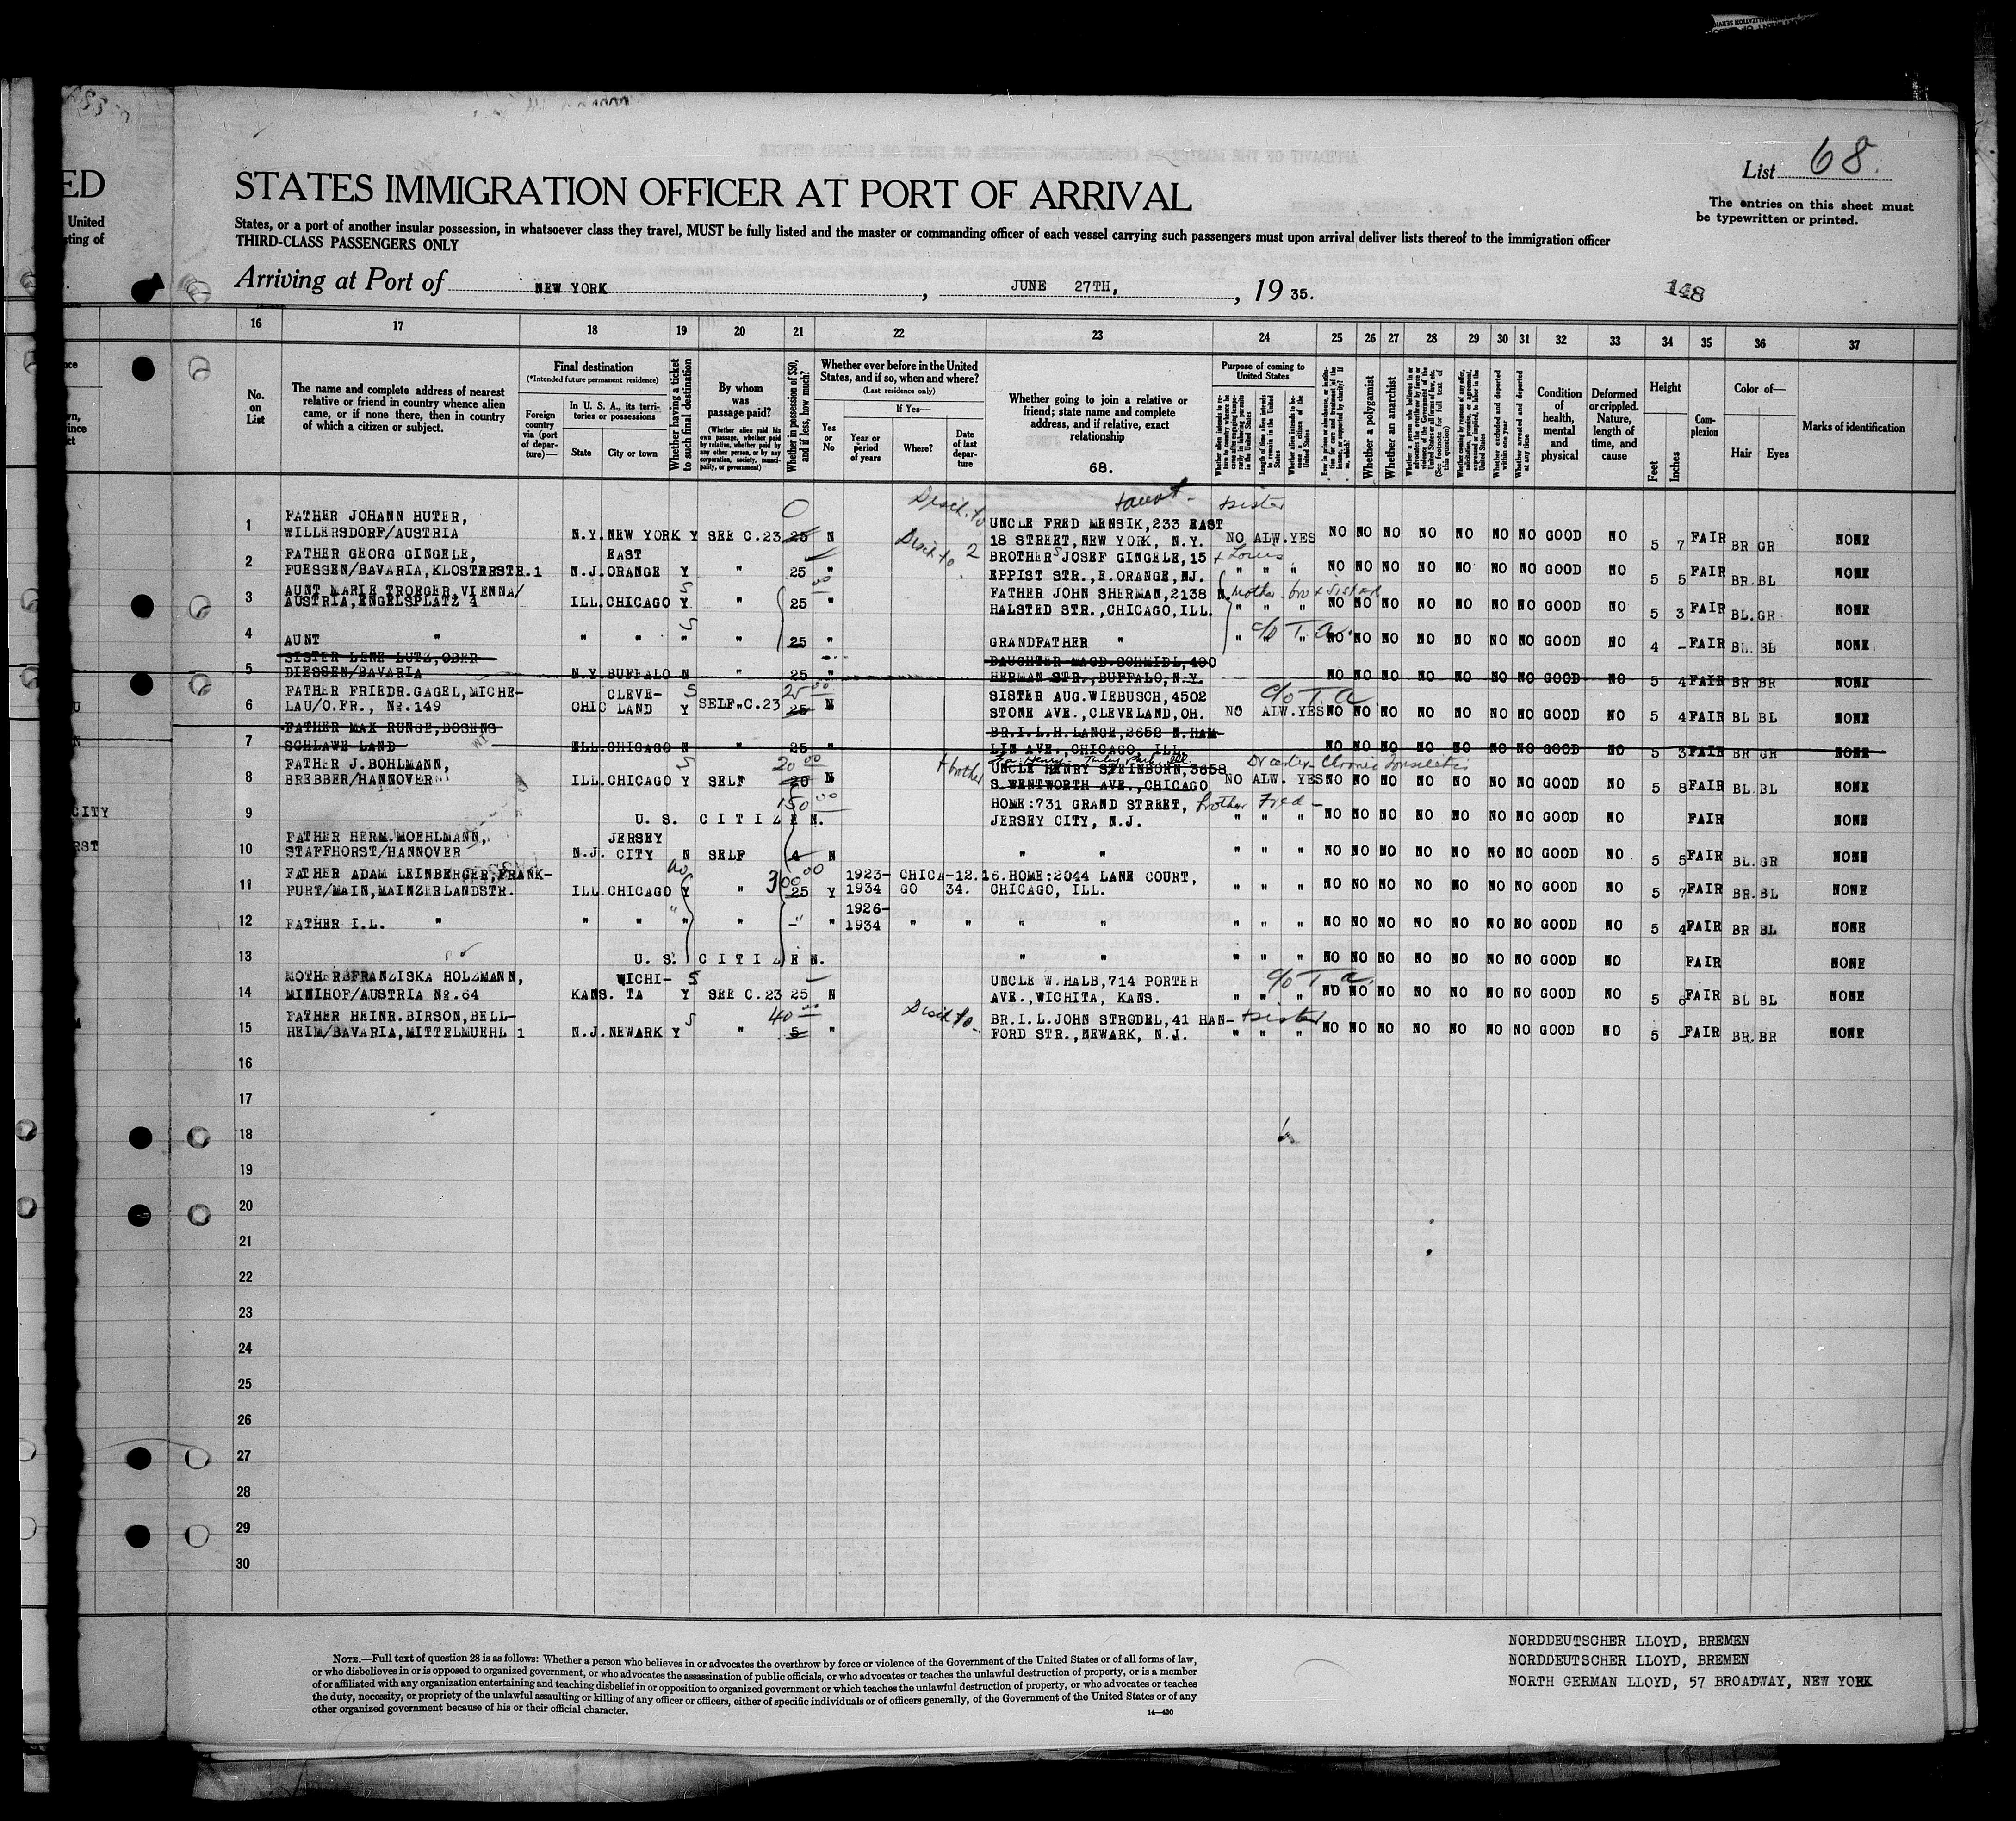 ED
United
sting of
List 68.
STATES IMMIGRATION OFFICER AT PORT OF ARRIVAL
The entries on this sheet must
be typewritten or printed.
States, or a port of another insular possession, in whatsoever class they travel, MUST be fully listed and the master or commanding officer of each vessel carrying such passengers must upon arrival deliver lists thereof to the immigration officer
THIRD-CLASS PASSENGERS ONLY
Arriving at Port of NEW YORK, JUNE 27TH, 1935.
148
16 17 18 19 20 21 22 23 24 25 26 27 28 29 30 31 32 33 34 35 36 37
No. on List
The name and complete address of nearest relative or friend in country whence alien came, or if none there, then in country of which a citizen or subject.
Final destination
(*Intended future permanent residence)
Foreign country via (port of departure)—
In U. S. A., its territories or possessions
State
City or town
Whether having a ticket to such final destination
By whom was passage paid?
(Whether alien paid his own passage, whether paid by relative, whether paid by any other person, or by any corporation, society, municipality, or government)
Whether in possession of $50, and if less, how much?
Whether ever before in the United States, and if so, when and where?
(Last residence only)
Yes or No
If Yes—
Year or period of years
Where?
Date of last departure
Whether going to join a relative or friend; state name and complete address, and if relative, exact relationship
68.
Purpose of coming to United States
Whether a polygamist
Whether an anarchist
Condition of health, mental and physical
Deformed or crippled. Nature, length of time, and cause
Height
Feet
Inches
Complexion
Color of—
Hair
Eyes
Marks of identification
1 FATHER JOHANN HUTER, WILLERSDORF/AUSTRIA N.Y. NEW YORK Y SEE C.23 25 N UNCLE FRED MENSIK, 233 EAST 18 STREET, NEW YORK, N.Y. NO ALW. YES NO NO NO NO NO NO NO GOOD NO 5 7 FAIR BR GR NONE
2 FATHER GEORG GINGELE, FUESSEN/BAVARIA, KLOSTERSTR.1 N.J. EAST ORANGE Y " 25 " BROTHERS JOSEF GINGELE, 15 EPPIST STR., E.ORANGE, NJ. + Louis " " " NO NO NO NO NO NO NO GOOD NO 5 5 FAIR BR. BL NONE
3 AUNT MARIE TROEGER, VIENNA/ AUSTRIA, ENGELSPLATZ 4 ILL. CHICAGO Y " 25 " FATHER JOHN SHERMAN, 2138 N. HALSTED STR., CHICAGO, ILL. Mother bro + sister " " " NO NO NO NO NO NO NO GOOD NO 5 3 FAIR BL. GR NONE
4 AUNT " " " " " 25 " GRANDFATHER " " " " NO NO NO NO NO NO NO GOOD NO 4 - FAIR BL. BL NONE
5 SISTER LENE LUTZ, OBER DIESSEN/BAVARIA N.Y. BUFFALO N " 25 " DAUGHTER MAGD. SCHMIDL, 400 HERMAN STR., BUFFALO, N.Y. NO NO NO NO NO NO NO GOOD NO 5 4 FAIR BR BR NONE
6 FATHER FRIEDR. GAGEL, MICHELAU/O.FR., No. 149 OHIO CLEVELAND Y SELF C.23 25 N SISTER AUG. WIEBUSCH, 4502 STONE AVE., CLEVELAND, OH. NO ALW. YES NO NO NO NO NO NO NO GOOD NO 5 4 FAIR BL BL NONE
7 FATHER MAX RUNGE, BOSENS SCHLAWE LAND ILL. CHICAGO N " 25 " BR.I.L.H. LANGE, 2652 N. HAMLIN AVE., CHICAGO, ILL. NO NO NO NO NO NO NO GOOD NO 5 3 FAIR BR GR NONE
8 FATHER J. BOHLMANN, BREBBER/HANNOVER ILL. CHICAGO Y SELF 20 N + brother UNCLE HENRY STEINBORN, 3658 S. WENTWORTH AVE., CHICAGO NO ALW. YES NO NO NO NO NO NO NO GOOD NO 5 8 FAIR BL. BL NONE
9 U. S. CITIZEN. HOME: 731 GRAND STREET, JERSEY CITY, N.J. brother Fred " " " NO NO NO NO NO NO NO GOOD NO FAIR NONE
10 FATHER HERM. MOEHLMANN, STAFFHORST/HANNOVER N.J. JERSEY CITY N SELF 4 N " " " " " NO NO NO NO NO NO NO GOOD NO 5 5 FAIR BL. GR NONE
11 FATHER ADAM LEINBERGER, FRANKFURT/MAIN, MAINZERLANDSTR. ILL. CHICAGO Y " 300 25 Y 1923-1934 CHICAGO -12.16.34. HOME: 2044 LANE COURT, CHICAGO, ILL. " " " NO NO NO NO NO NO NO GOOD NO 5 7 FAIR BR. BL NONE
12 FATHER I.L. " " " " " - " 1926-1934 " " " " " " " NO NO NO NO NO NO NO GOOD NO 5 4 FAIR BR BL NONE
13 U. S. CITIZEN. " " " " " NO NO NO NO NO NO NO GOOD NO FAIR NONE
14 MOTHER FRANZISKA HOLZMANN, MINIHOF/AUSTRIA No. 64 KANS. WICHITA Y SEE C.23 25 N UNCLE W. HALB, 714 PORTER AVE., WICHITA, KANS. " " " NO NO NO NO NO NO NO GOOD NO 5 6 FAIR BL BL NONE
15 FATHER HEINR. BIRSON, BELLHEIM/BAVARIA, MITTELMUEHL 1 N.J. NEWARK Y " 40 5 " BR.I.L. JOHN STRODEL, 41 HANFORD STR., NEWARK, N.J. + sister " " " NO NO NO NO NO NO NO GOOD NO 5 - FAIR BR. BR NONE
16
17
18
19
20
21
22
23
24
25
26
27
28
29
30
NOTE.—Full text of question 28 is as follows: Whether a person who believes in or advocates the overthrow by force or violence of the Government of the United States or of all forms of law,
or who disbelieves in or is opposed to organized government, or who advocates the assassination of public officials, or who advocates or teaches the unlawful destruction of property, or is a member
of or affiliated with any organization entertaining and teaching disbelief in or opposition to organized government or which teaches the unlawful destruction of property, or who advocates or teaches
the duty, necessity, or propriety of the unlawful assaulting or killing of any officer or officers, either of specific individuals or of officers generally, of the Government of the United States or of any
other organized government because of his or their official character.
14—430
NORDDEUTSCHER LLOYD, BREMEN
NORDDEUTSCHER LLOYD, BREMEN
NORTH GERMAN LLOYD, 57 BROADWAY, NEW YORK